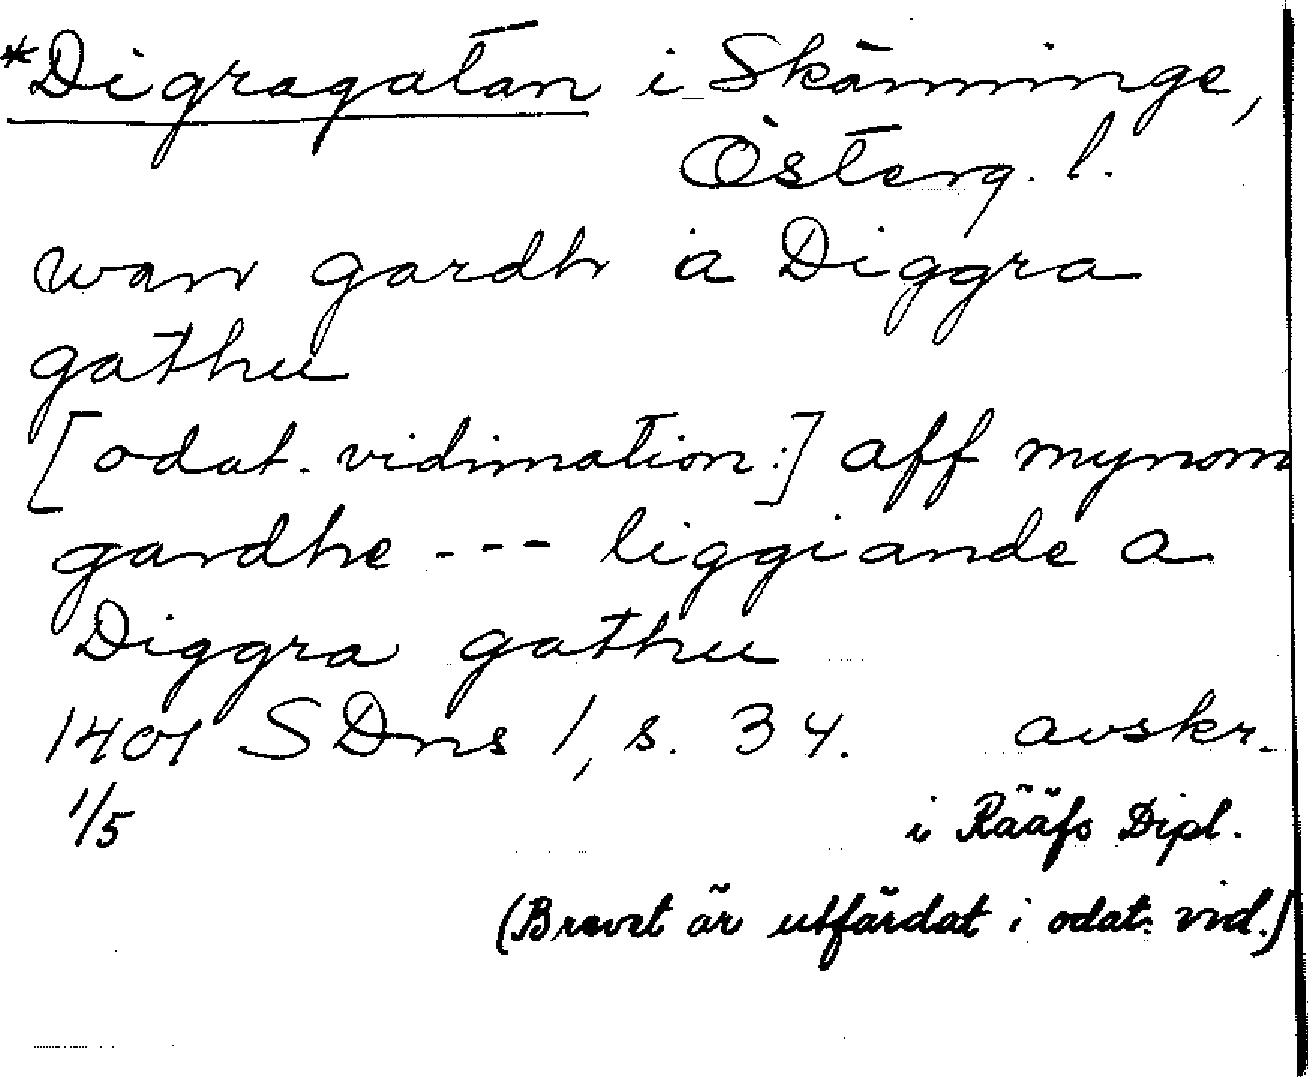 *Digragatan i Skänninge,
Österg. l.
wan gardh å Diggra
gathu
[odat. vidimation:] aff mynom
gardhe --- liggiande a
Diggra gathu
1401 SDns 1, s. 34. avskr.
1/5 i Rääfs Dipl.
(Brevet är utfärdat i odat. vid.)